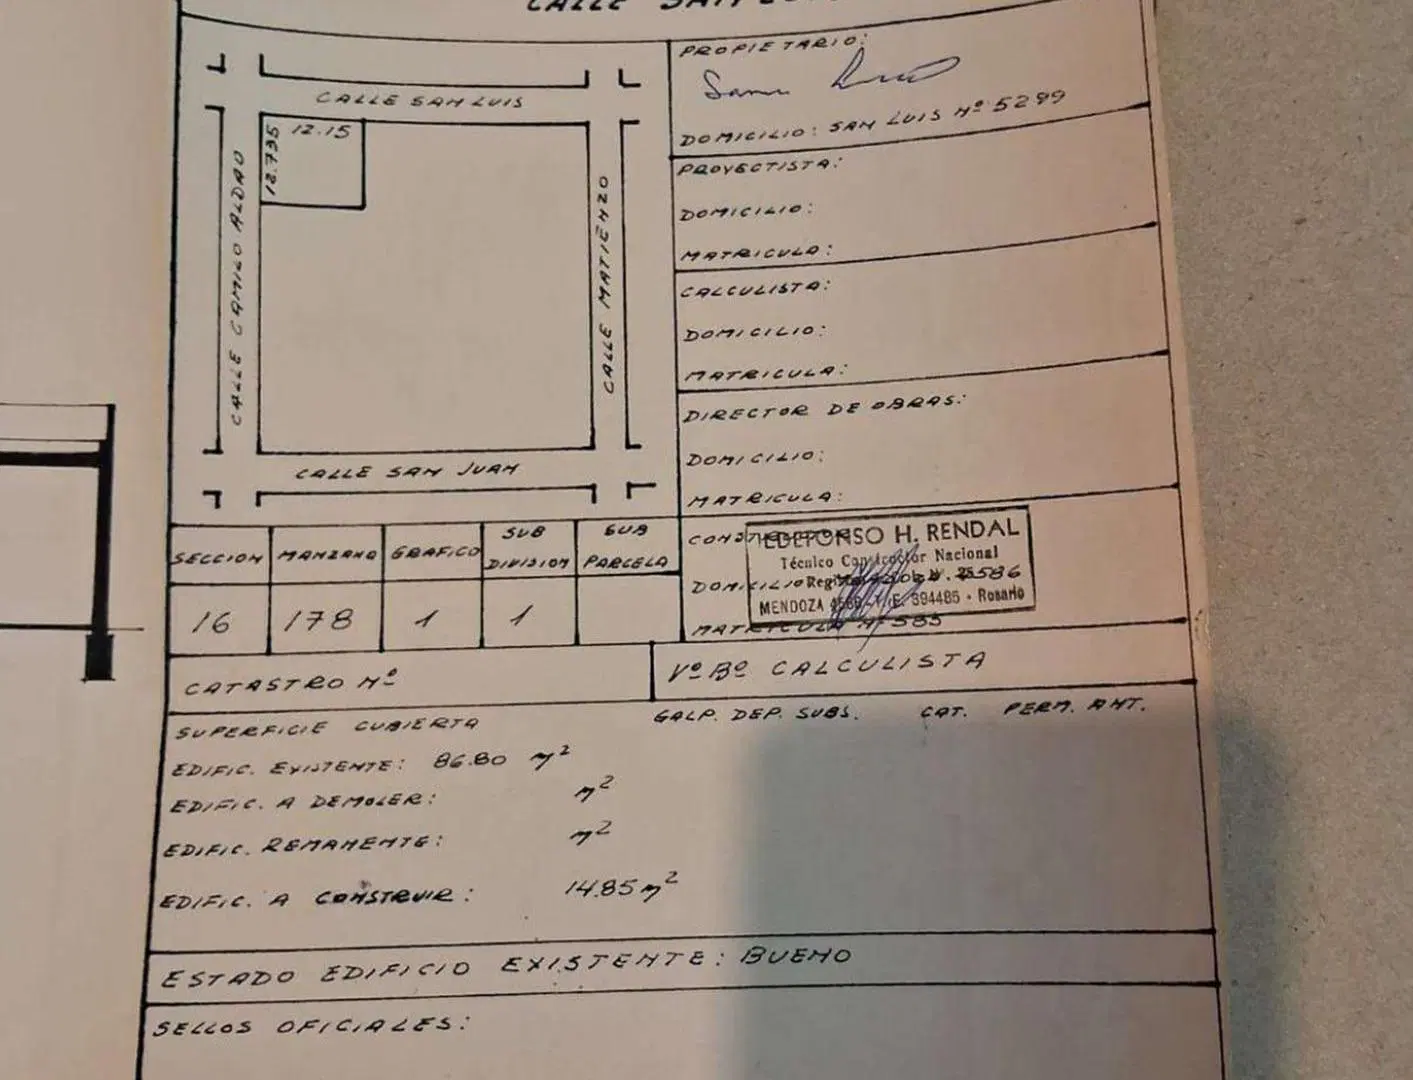 CALLE SAN LUIS
CALLE SAN LUIS
12.15
12.735
CALLE CAMILO ALDAO
CALLE MATIENZO
CALLE SAN JUAN
PROPIETARIO:
DOMICILIO: SAN LUIS Nº 5299
PROYECTISTA:
DOMICILIO:
MATRICULA:
CALCULISTA:
DOMICILIO:
MATRICULA:
DIRECTOR DE OBRAS:
DOMICILIO:
MATRICULA:
ILDEFONSO H. RENDAL
Técnico Constructor Nacional
DOMICILIO
MENDOZA T.E. 394485 - Rosario
MATRICULA Nº 585
SECCION MANZANA GRAFICO SUB DIVISION SUB PARCELA
16 178 1 1
CATASTRO Nº
Vº Bº CALCULISTA
SUPERFICIE CUBIERTA
GALP. DEP. SUBS. CAT. PERM. ANT.
EDIFIC. EXISTENTE: 86.80 m²
EDIFIC. A DEMOLER: m²
EDIFIC. REMANENTE: m²
EDIFIC. A CONSTRUIR: 14.85 m²
ESTADO EDIFICIO EXISTENTE: BUENO
SELLOS OFICIALES: